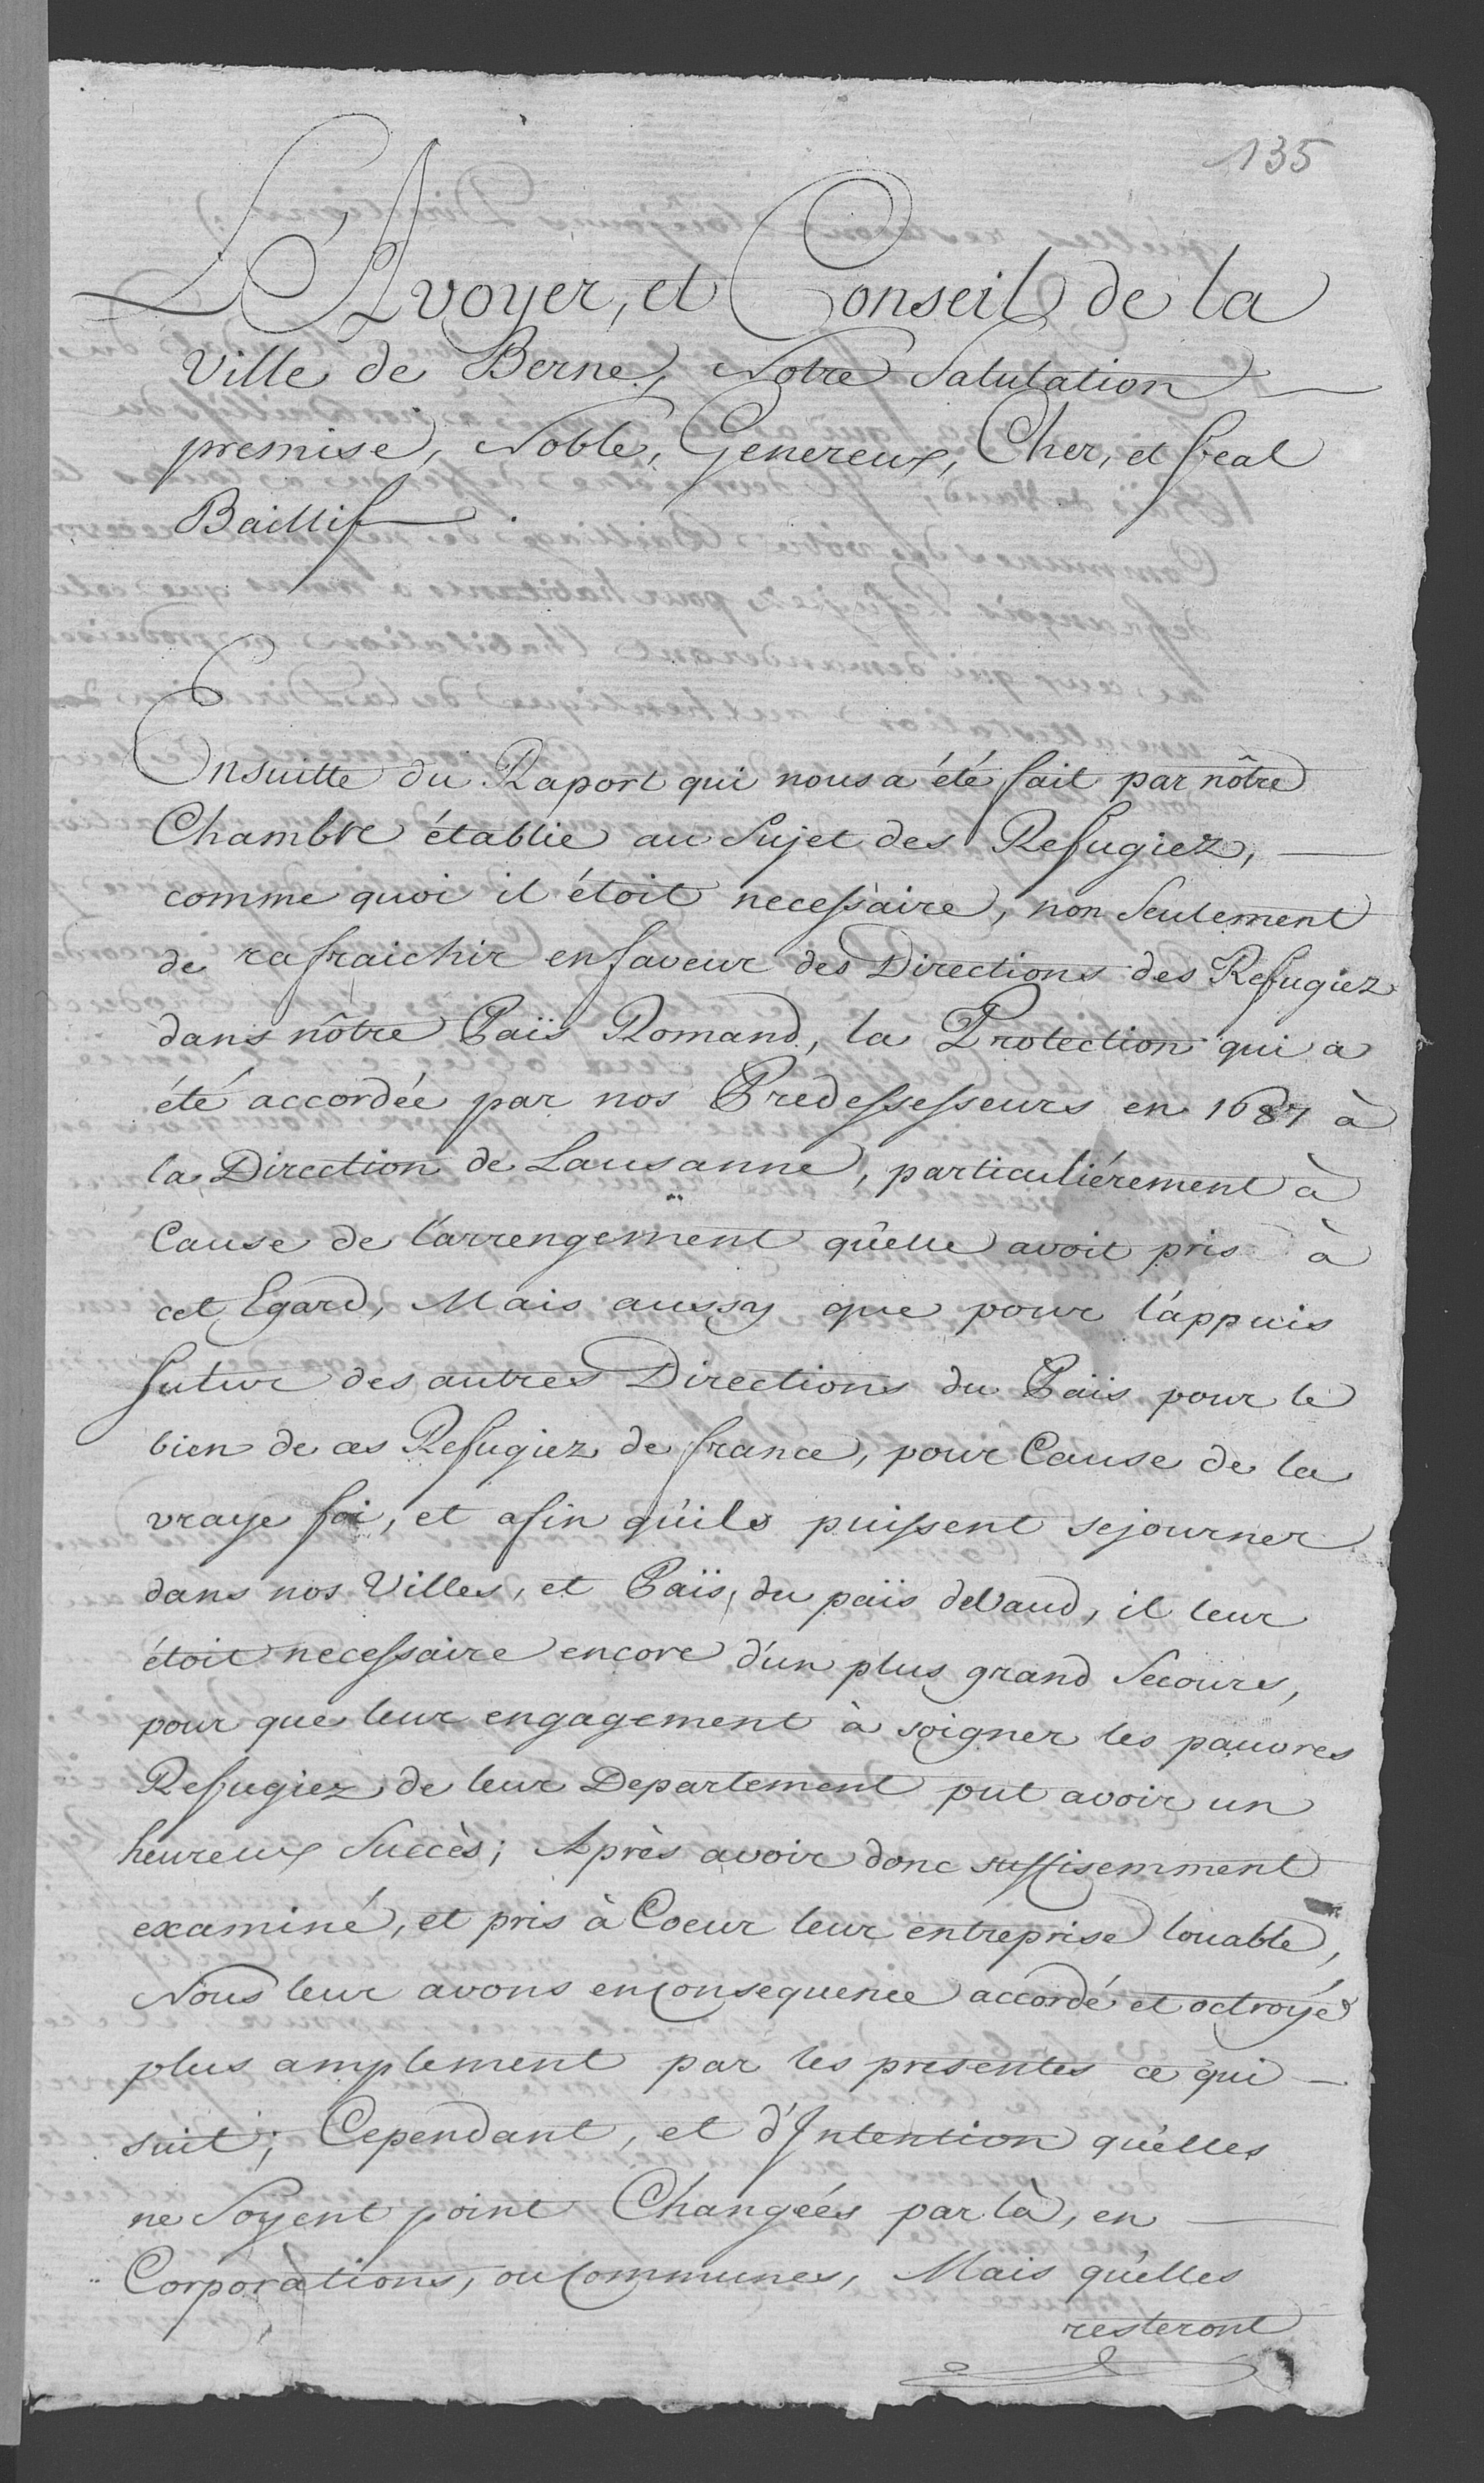 135
L'Avoyer, et Conseil de la
Ville de Berne, Notre Salutation
premise, Noble, Genereux, Cher, et feal
Baillif.
Ensuitte du Raport qui nous a été fait par nôtre
Chambre établie au Sujet des Refugiez,
comme quoi il étoit necessaire, non Seulement
de rafraichir en faveur des Directions des Refugiez
dans nôtre Païs Romand, la Protection qui a
été accordée par nos Predessesseurs en 1687 à
la Direction de Lausanne, particuliérement à
Cause de l'arrengement qu'elle avoit pris à
cet Egard, Mais aussy que pour l'appuis
futur des autres Directions du Païs pour le
bien de ces Refugiez de france, pour Cause de la
vraye foi, et afin qu'ils puissent sejourner
dans nos Villes, et Païs, du païs deVaud, il leur
étoit necessaire encore d'un plus grand Secours,
pour que leur engagement à soigner les pauvres
Refugiez de leur Departement put avoir un
heureux Succès; Après avoir donc suffisemment
examiné, et pris à Coeur leur entreprise louable,
Nous leur avons en Consequence accordé et octroyé
plus amplement par les presentes ce qui
suit; Cependant, et d'Intention qu'elles
ne Soyent point Changées par là, en
Corporàtions, ou Communes, Mais qu'elles
resteront